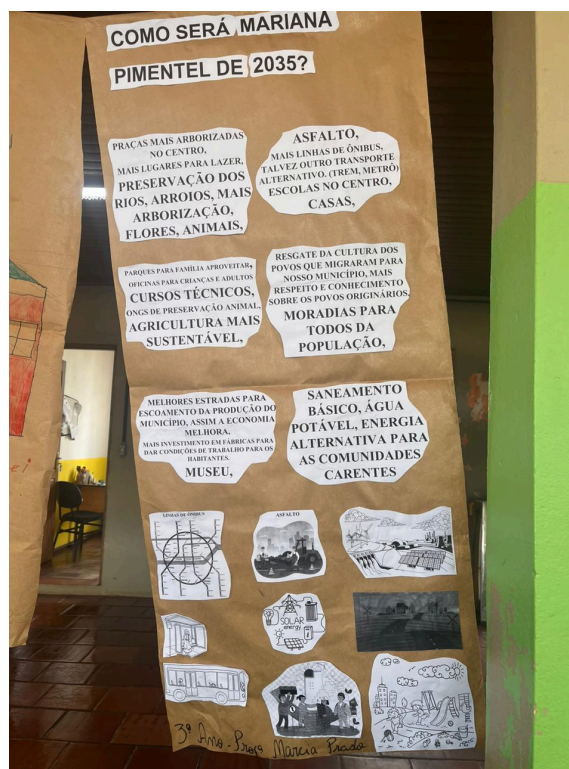 COMO SERÁ MARIANA
PIMENTEL DE 2035?
PRAÇAS MAIS ARBORIZADAS
NO CENTRO,
MAIS LUGARES PARA LAZER,
PRESERVAÇÃO DOS
RIOS, ARROIOS, MAIS
ARBORIZAÇÃO,
FLORES, ANIMAIS,
ASFALTO,
MAIS LINHAS DE ÔNIBUS,
TALVEZ OUTRO TRANSPORTE
ALTERNATIVO. (TREM, METRÔ)
ESCOLAS NO CENTRO,
CASAS,
PARQUES PARA FAMÍLIA APROVEITAR,
OFICINAS PARA CRIANÇAS E ADULTOS
CURSOS TÉCNICOS,
ONGS DE PRESERVAÇÃO ANIMAL,
AGRICULTURA MAIS
SUSTENTÁVEL,
RESGATE DA CULTURA DOS
POVOS QUE MIGRARAM PARA
NOSSO MUNICÍPIO, MAIS
RESPEITO E CONHECIMENTO
SOBRE OS POVOS ORIGINÁRIOS.
MORADIAS PARA
TODOS DA
POPULAÇÃO,
MELHORES ESTRADAS PARA
ESCOAMENTO DA PRODUÇÃO DO
MUNICÍPIO, ASSIM A ECONOMIA
MELHORA.
MAIS INVESTIMENTO EM FÁBRICAS PARA
DAR CONDIÇÕES DE TRABALHO PARA OS
HABITANTES.
MUSEU,
SANEAMENTO
BÁSICO, ÁGUA
POTÁVEL, ENERGIA
ALTERNATIVA PARA
AS COMUNIDADES
CARENTES
LINHAS DE ÔNIBUS
ASFALTO
SOLAR
energy
3º Ano - Profª Marcia Prado